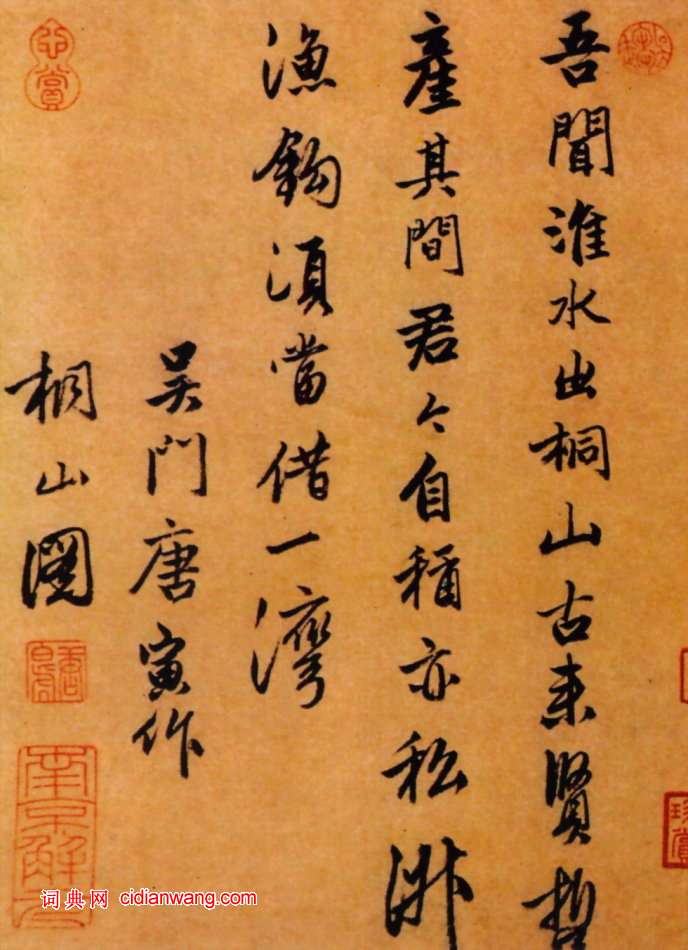 吾聞淮水出桐山古來賢哲
產其間君今自稱亦私淑
漁鈎須當借一灣
吳門唐寅作
桐山圖
南京解元
珍賞
词典网 cidianwang.com